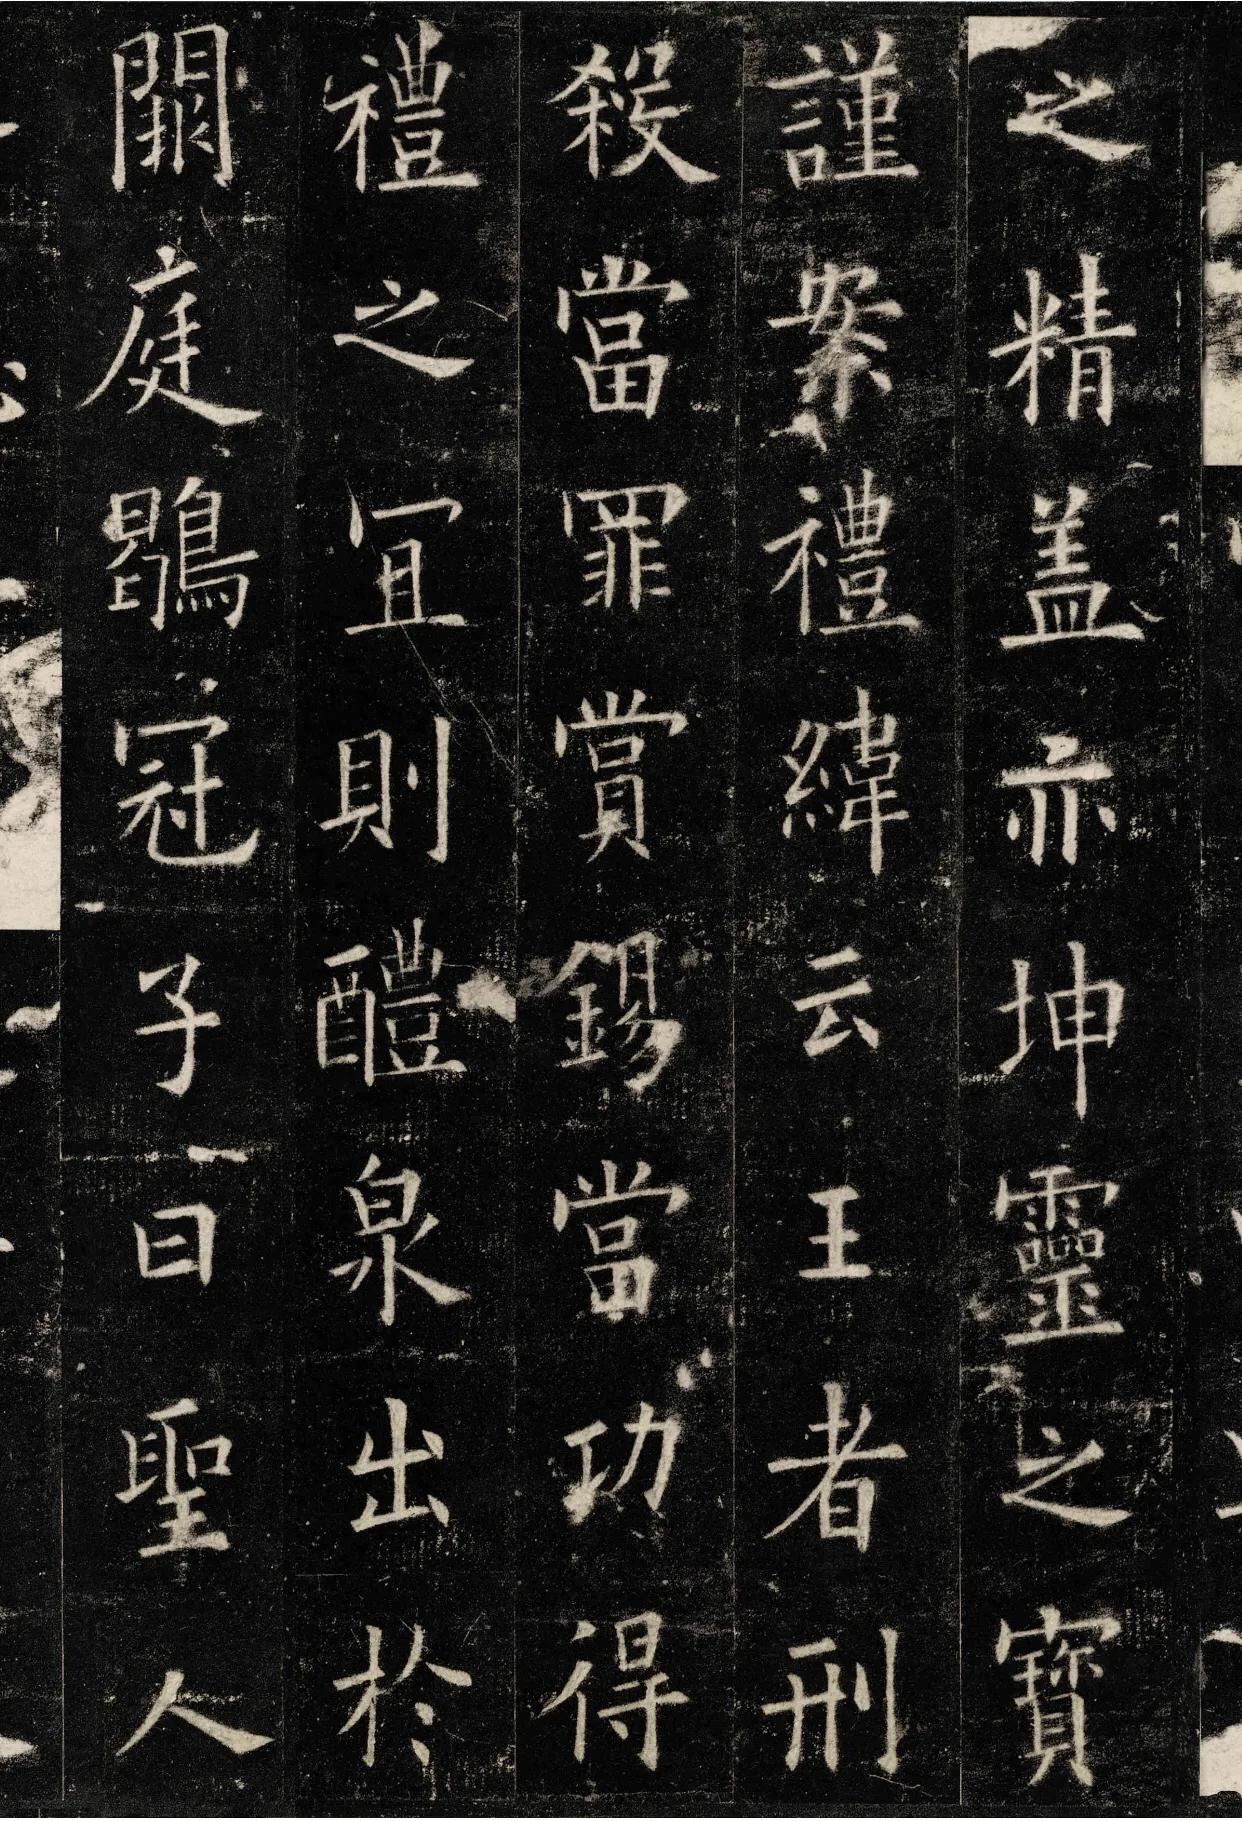 之精盖亦坤靈之寶
謹案禮緯云王者刑
殺當罪賞錫當功得
禮之宜則醴泉出於
闕庭鶡冠子曰聖人